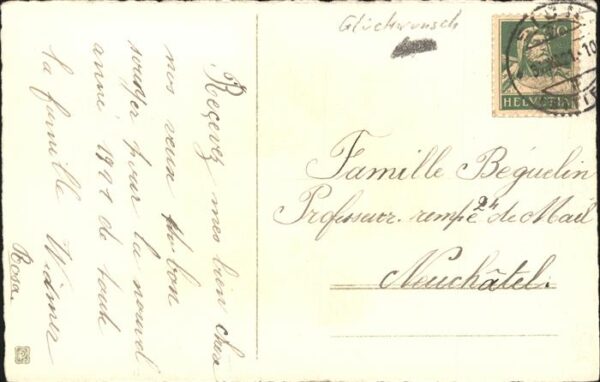 Glückwunsch
HELVETIA
Reçevez mes bien chers
nos veux du bon
souhger pour la nouvel
anné 1921 de toute
la famille Widmer
Rosa.
Famille Béguelin
Professeur. rempe 24 de Mail
Neuchâtel.